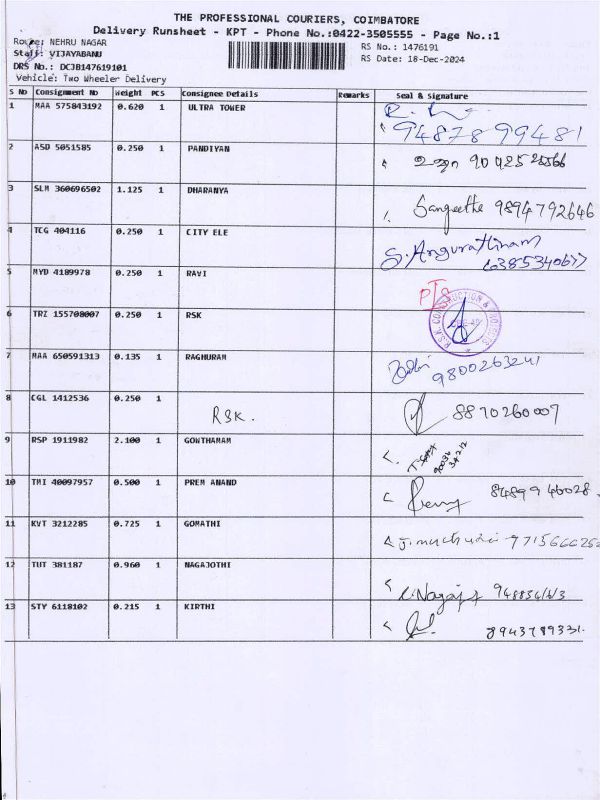 THE PROFESSIONAL COURIERS, COIMBATORE
Delivery Runsheet - KPT - Phone No.:0422-3505555 - Page No.:1
Route: NEHRU NAGAR
RS No.: 1476191
Staff: VIJAYABANU
RS Date: 18-Dec-2024
DRS No.: DCJB147619101
Vehicle: Two Wheeler Delivery
S No Consignment No Weight PCS Consignee Details Remarks Seal & Signature
1 MAA 575843192 0.620 1 ULTRA TOWER
94878 99481
2 ASD 5051585 0.250 1 PANDIYAN
3 SLM 360696502 1.125 1 DHARANYA
Sangeetha 9894792646
4 TCG 404116 0.250 1 CITY ELE
S. Angurathinam
6385340677
5 MYD 4189978 0.250 1 RAVI
6 TRZ 155708007 0.250 1 RSK
R.S.K. CONSTRUCTION &
7 MAA 650591313 0.135 1 RAGHURAM
9800263241
8 CGL 1412536 0.250 1
RSK. 8870260007
9 RSP 1911982 2.100 1 GONTHAMAM
10 TMI 40097957 0.500 1 PREM ANAND
8489940028
11 KVT 3212285 0.725 1 GOMATHI
12 TUT 381187 0.960 1 NAGAJOTHI
13 STY 6118102 0.215 1 KIRTHI
8943789331.